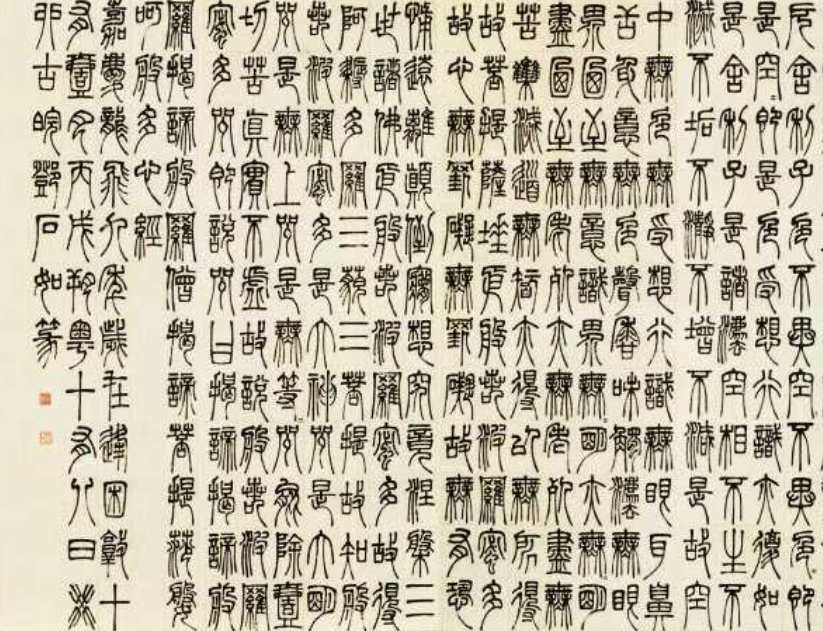 厄舍利子色不異空不異色即
是空即是色受想行識亦復如
是舍利子是諸法空相不生不
滅不垢不淨不增不減是故空
中無色無受想行識無眼耳鼻
舌身意無色聲香味觸法無眼
界迺至無意識界無明亦無明
盡迺至無老死亦無老死盡無
苦集滅道無智亦得以無所得
故菩提薩埵依般若波羅蜜多
故心無罣礙無罣礙故無有恐
怖遠離顛倒夢想究竟涅槃三
世諸佛依般若波羅蜜多故得
阿耨多羅三藐三菩提故知般
若波羅蜜多是大神咒是大明
咒是無上咒是無等咒能除壹
切苦真實不虛故說般若波羅
蜜多咒即說咒曰揭諦揭諦般
羅揭諦般羅僧揭諦菩提薩婆
呵般多心經
嘉慶龍飛九年歲在逢困敦十
有壹月丙戌朔粵十有八日癸
卯古皖鄧石如篆